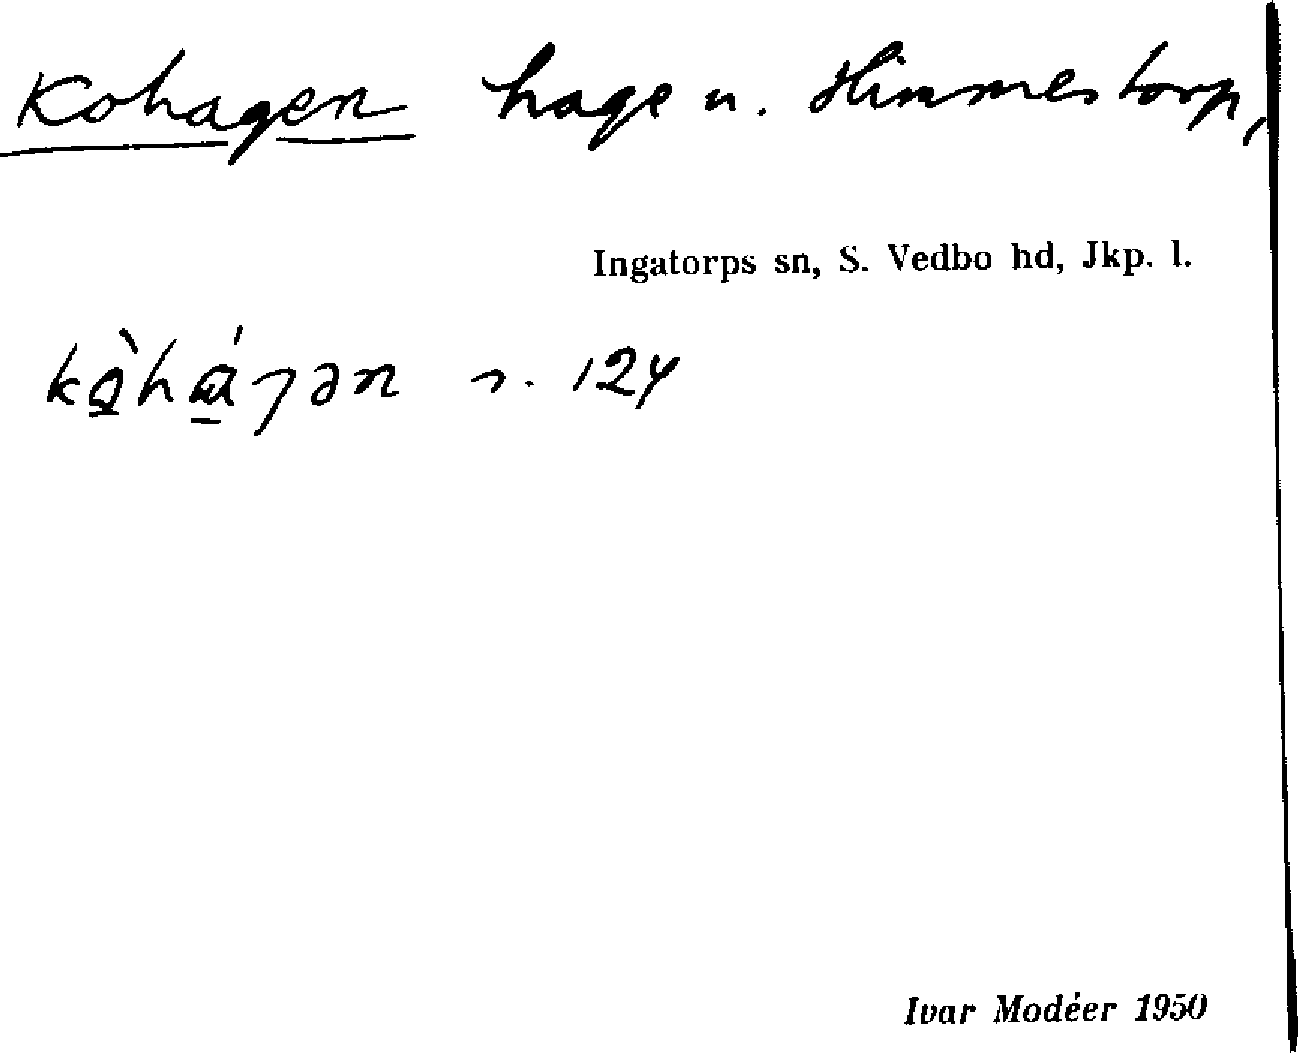 Kohagen hage u. Himmestorp,
Ingatorps sn, S. Vedbo hd, Jkp. l.
124
Ivar Modéer 1950